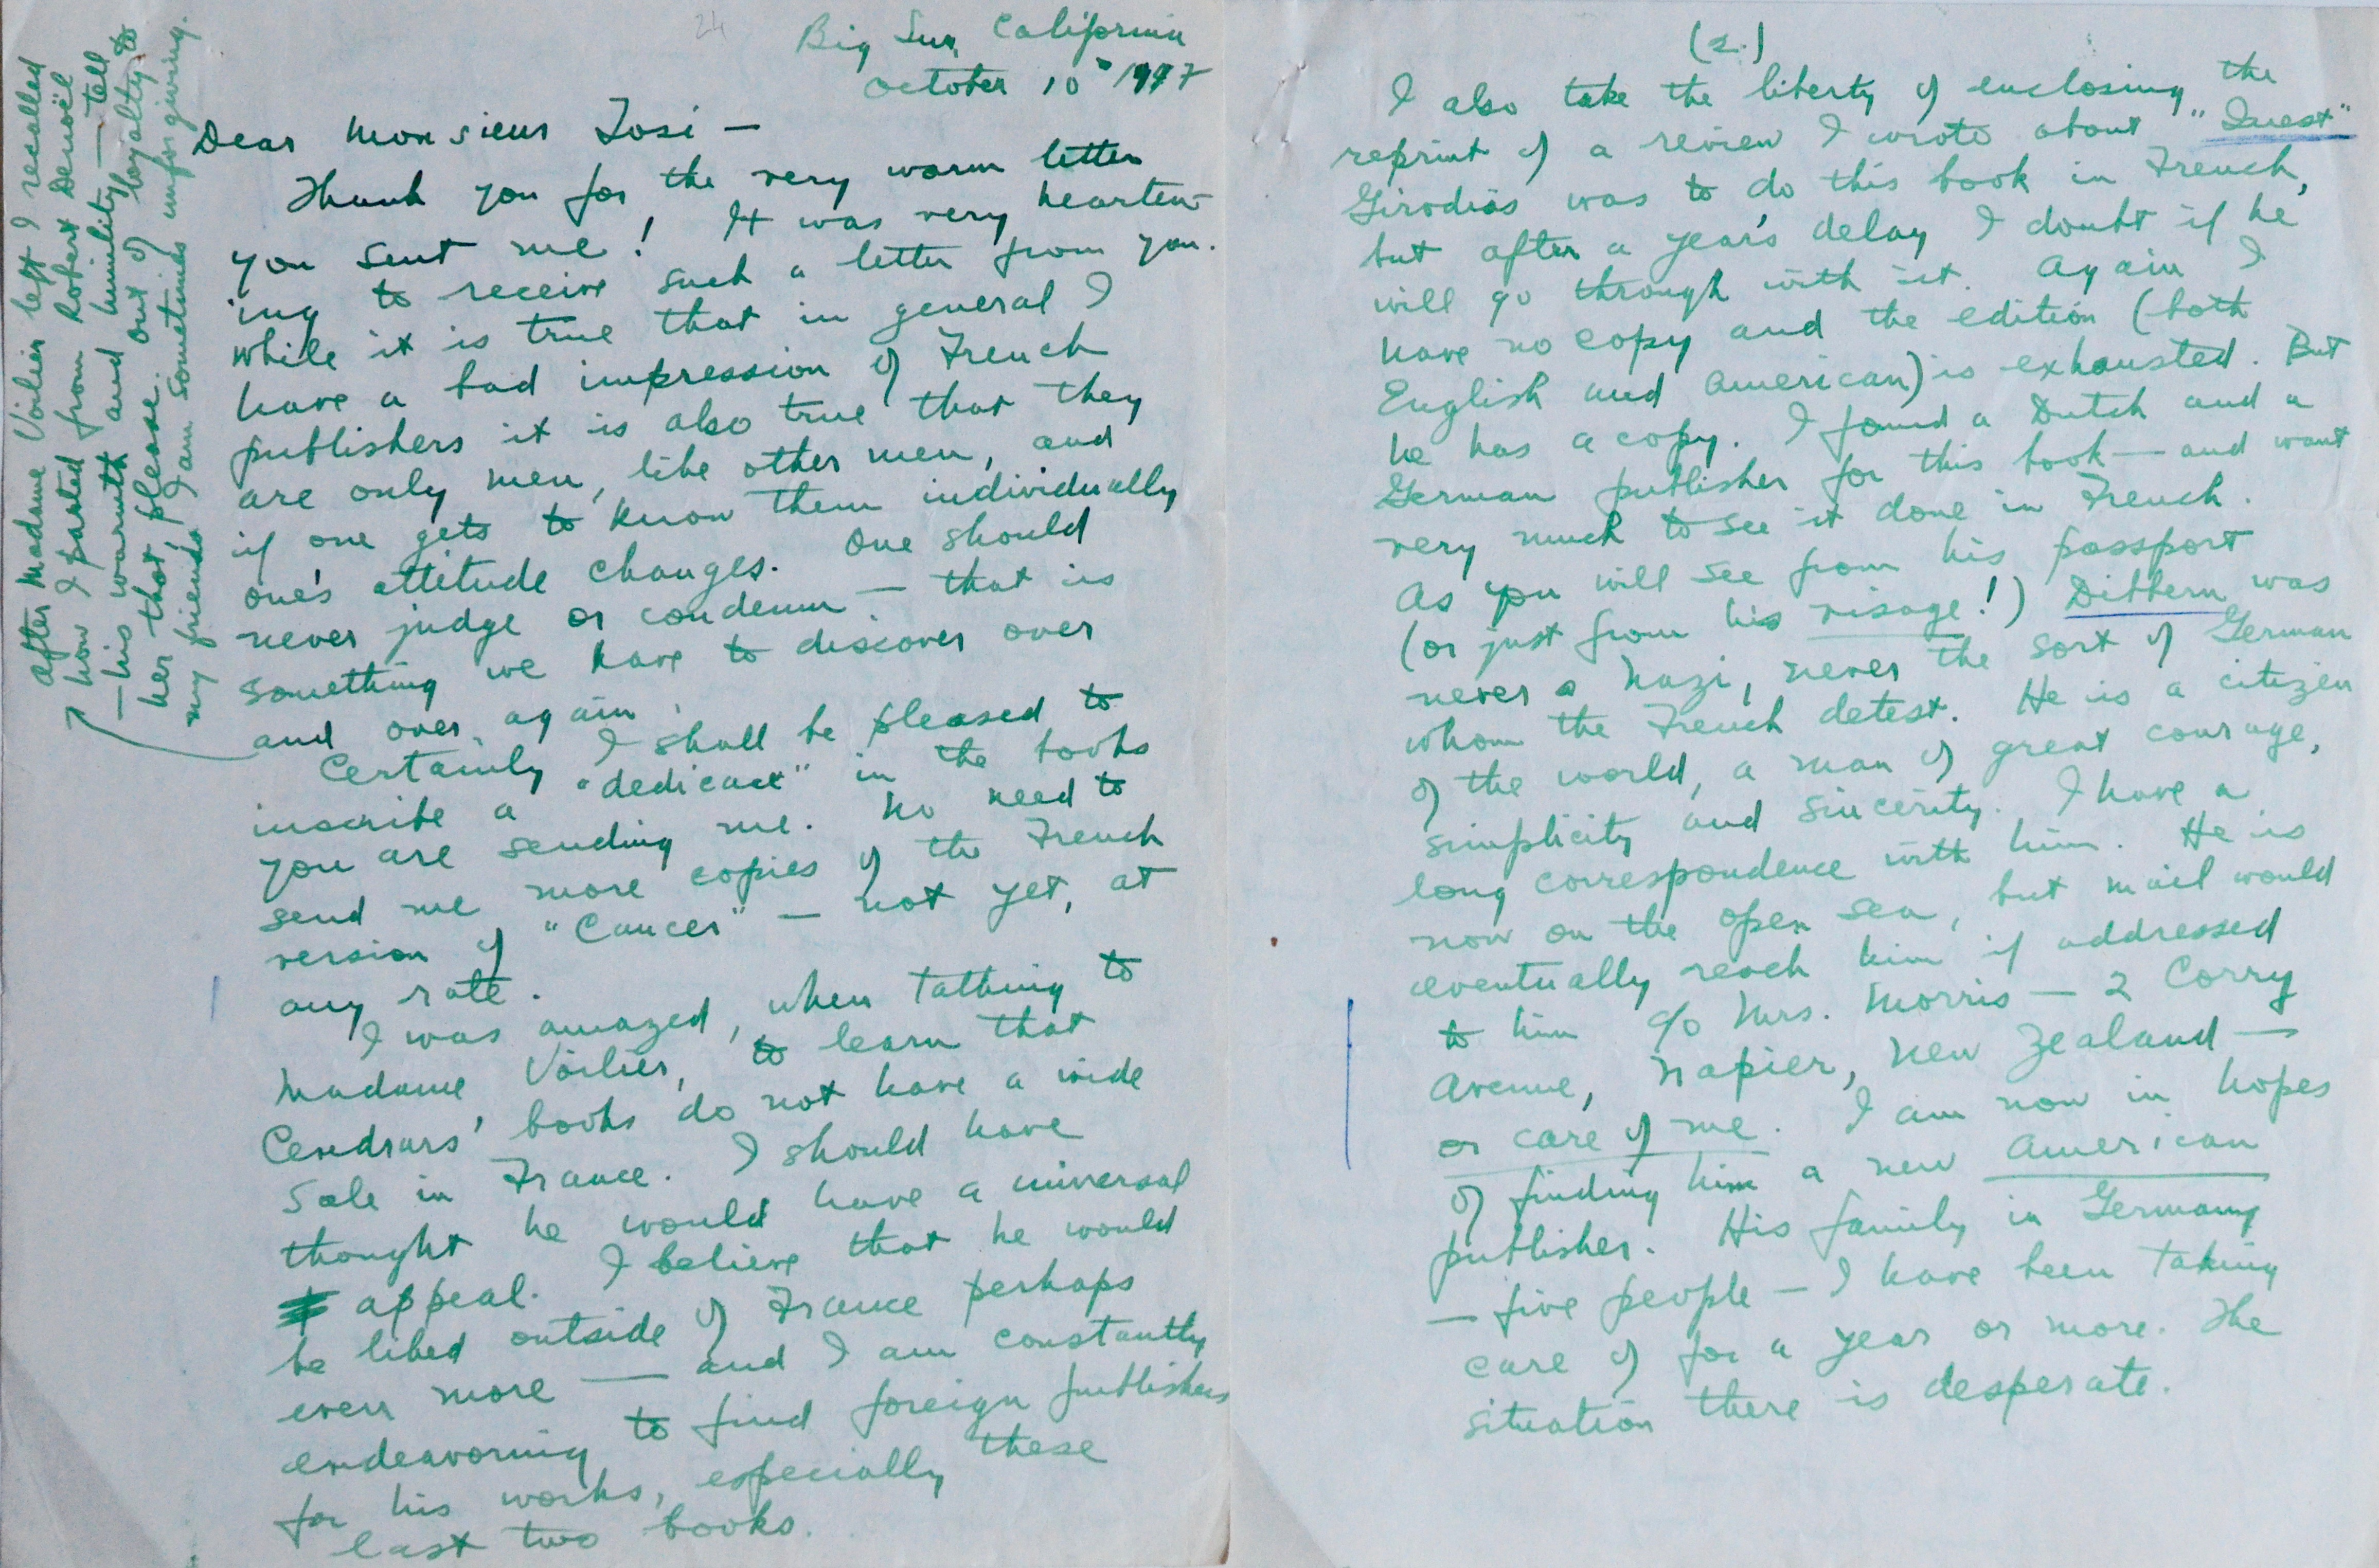 24
Big Sur, California
October 10th 1947
Dear Monsieur Tosi —
Thank you for the very warm letter
you sent me! It was very hearten-
ing to receive such a letter from you.
While it is true that in general I
have a bad impression of French
publishers it is also true that they
are only men, like other men, and
if one gets to know them individually
one's attitude changes. One should
never judge or condemn — that is
something we have to discover over
and over again.
Certainly I shall be pleased to
inscribe a "dedicace" in the books
you are sending me. No need to
send me more copies of the French
version of "Cancer" — not yet, at
any rate.
I was amazed, when talking to
Madame Voilier, to learn that
Cendrars' books do not have a wide
sale in France. I should have
thought he would have a universal
appeal. I believe that he would
be liked outside of France perhaps
even more — and I am constantly
endeavoring to find foreign publishers
for his works, especially these
last two books.
After Madame Voilier left I recalled
how I parted from Robert Denoël
— his warmth and humility — tell
her that please. Out of loyalty to
my friends I am sometimes unforgiving.
(2.)
I also take the liberty of enclosing the
reprint of a review I wrote about "Quest"
Girodias was to do this book in French,
but after a year's delay I doubt if he
will go through with it. Again I
have no copy and the edition (both
English and American) is exhausted. But
he has a copy. I found a Dutch and a
German publisher for this book — and want
very much to see it done in French.
As you will see from his passport
(or just from his visage!) Dibbern was
never a Nazi, never the sort of German
whom the French detest. He is a citizen
of the world, a man of great courage,
simplicity and sincerity. I have a
long correspondence with him. He is
now on the open sea, but mail would
eventually reach him if addressed
to him c/o Mrs. Morris — 2 Corry
Avenue, Napier, New Zealand —
or care of me. I am now in hopes
of finding him a new American
publisher. His family in Germany
— five people — I have been taking
care of for a year or more. The
situation there is desperate.